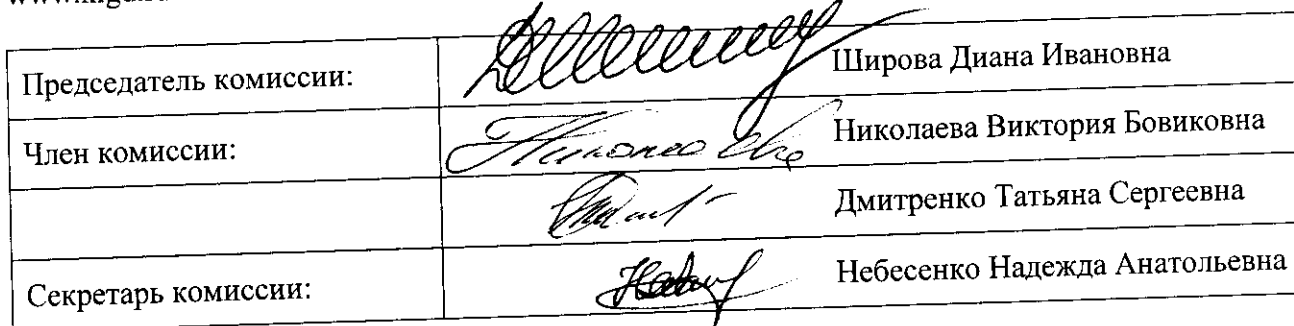 Председатель комиссии: Широва Диана Ивановна
Член комиссии: Николаева Виктория Бовиковна
Дмитренко Татьяна Сергеевна
Секретарь комиссии: Небесенко Надежда Анатольевна